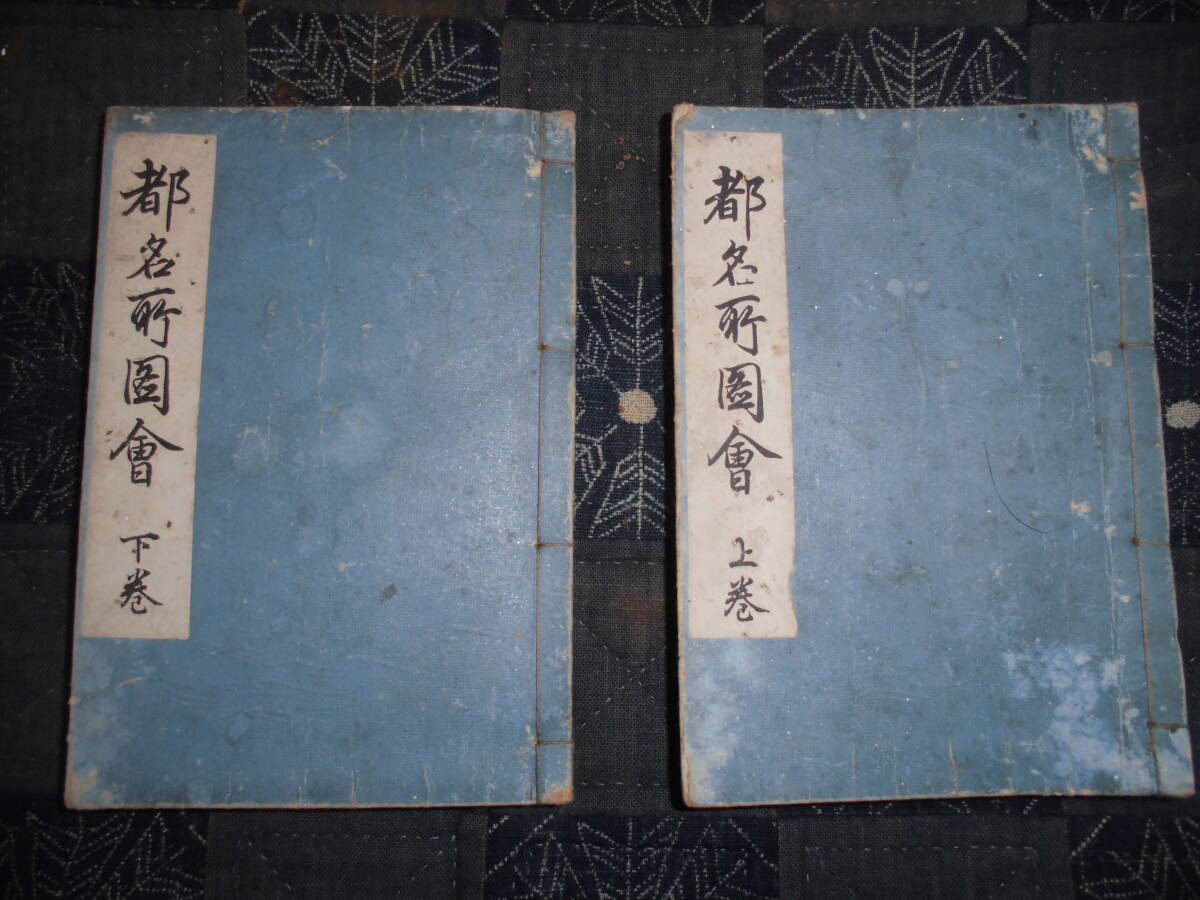 都名所圖會 上巻
都名所圖會 下巻